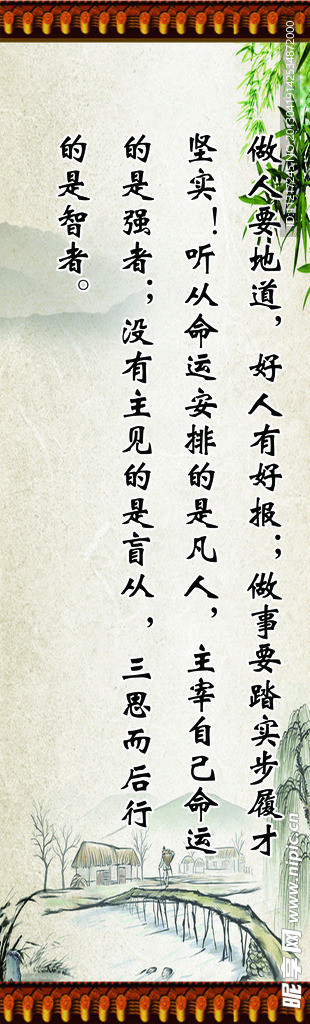 做人要地道，好人有好报；做事要踏实步履才
坚实！听从命运安排的是凡人，主宰自己命运
的是强者；没有主见的是盲从，三思而后行
的是智者。
昵享网 www.nipic.cn